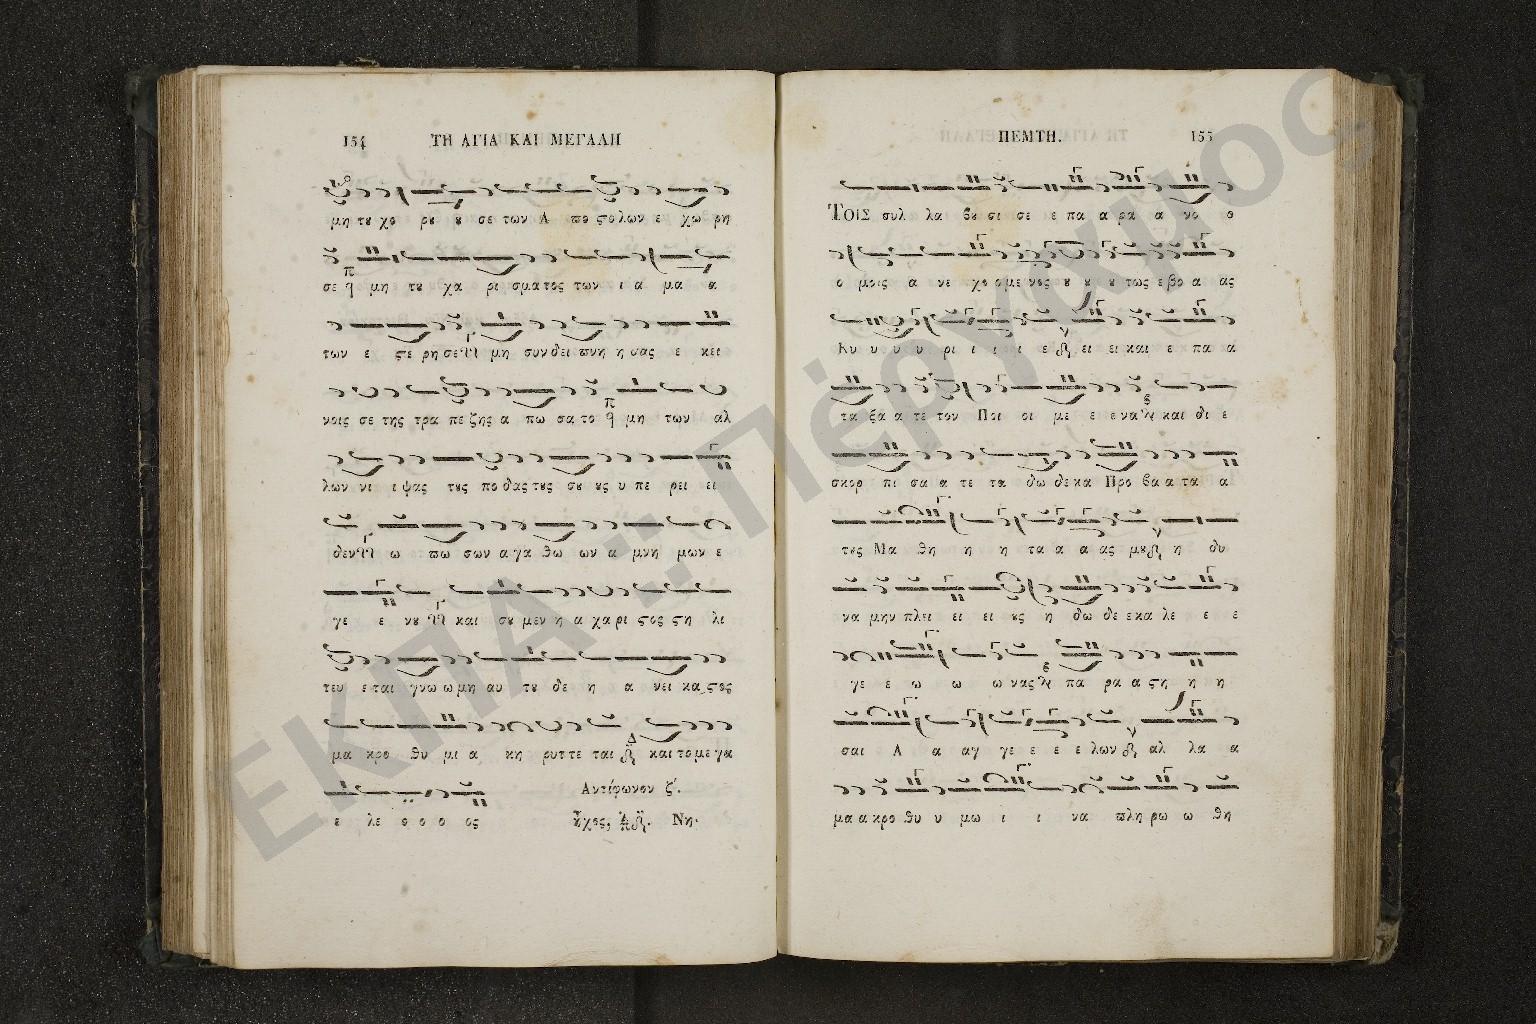 154 ΤΗ ΑΓΙΑ ΚΑΙ ΜΕΓΑΛΗ
μη τȣ χο ρȣ ȣ σε των Α πο ϛολων ε χω ρη
σε μη τȣ χα ρι σματος των ι α μα α
των ε ϛε ρη σε μη συνδει πνη η σας ε κει
νοις σε της τρα πε ζης α πω σα το μη των αλ
λων νι ι ψας τȣς ποδας τȣς σȣ ȣς υ πε ρει ει
δεν ω πω σων αγα θω ων α μνη μων ε
γε ε νȣ και σȣ μεν η α χα ρι ϛος ϛη λι
τευ εται γνω ω μη αυ τȣ δε η α νει κα ϛος
μα κρο θυ μι α κη ρυττε ται και το με γα
ε λε ο ο ο ος
Αντίφωνον ζ´.
ἦχος, Νη.
ΠΕΜΤΗ. 155
ΤΟΙΣ συλ λα βȣ σι σε ε πα α ρα α νο ο
ο μοις α νε χο ομε νος ȣ ȣ ȣ τως εβο α ας
Κυ υ υ υ ρι ι ι ι ε ει ει και ε πα α
τα ξα α τε τον Ποι οι με ε ε να και δι ε
σκορ πι σα α τε τα δω δεκα Προ βα α τα α
τȣς Μα θη η η τα α α ας μȣ η δυ
να μην πλει ει ει ȣς η δω δε εκα λε ε ε
γε ε ω ω ω νας πα ρα α ϛη η η
σαι Α α αγ γε ε ε ε λων αλ λα α
μα α κρο θυ υ μω ι ι να πλη ρω ω θη
ΕΚΠΑ :: Πέργαμος